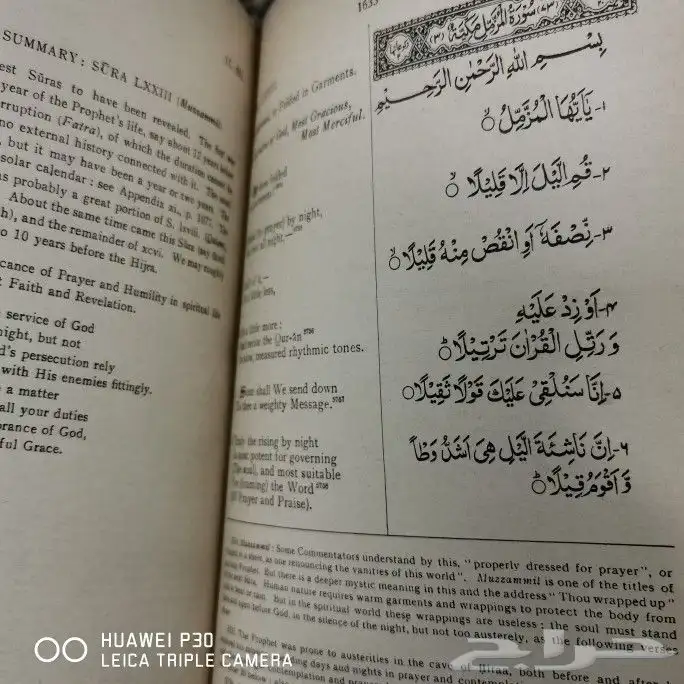 SUMMARY: SŪRA LXXIII (Muzzammil)
est Sūras to have been revealed. The
year of the Prophet's life, say about 12 years before
rruption (Fatra), of which the duration cannot be
no external history connected with it. The usual
, but it may have been a year or two years. The
solar calendar: see Appendix xi., p. 1077. The
as probably a great portion of S. lxviii.
About the same time came this Sūra (say
h), and the remainder of xcvi. We may roughly
o 10 years before the Hijra.
cance of Prayer and Humility in spiritual life
t Faith and Revelation.
service of God
night, but not
d's persecution rely
with His enemies fittingly.
a matter
all your duties
orance of God,
ful Grace.
1633
or Folded in Garments.
of God, Most Gracious,
Most Merciful.
folded
by night,
all night,—
of it,—
little less,
little more:
the Qur-ān
measured rhythmic tones.
Soon shall We send down
to thee a weighty Message.
Truly the rising by night
most potent for governing
soul), and most suitable
the Word
Prayer and Praise).
(٧٣) سُورَةُ الْمُزَّمِّلِ مَكِّيَّةٌ (٣)
بِسْمِ اللهِ الرَّحْمٰنِ الرَّحِيْمِ
١- يَاَيُّهَا الْمُزَّمِّلُ ۙ
٢- قُمِ الَّيْلَ اِلَّا قَلِيْلًا ۙ
٣- نِّصْفَهٗٓ اَوِ انْقُصْ مِنْهُ قَلِيْلًا ۙ
٤- اَوْ زِدْ عَلَيْهِ
وَرَتِّلِ الْقُرْاٰنَ تَرْتِيْلًا ؕ
٥- اِنَّا سَنُلْقِيْ عَلَيْكَ قَوْلًا ثَقِيْلًا ۝
٦- اِنَّ نَاشِئَةَ الَّيْلِ هِيَ اَشَدُّ وَطْاً
وَّ اَقْوَمُ قِيْلًا ؕ
Muzzammil: Some Commentators understand by this, "properly dressed for prayer", or
in a sheet, as one renouncing the vanities of this world". Muzzammil is one of the titles of
Prophet. But there is a deeper mystic meaning in this and the address "Thou wrapped up"
Human nature requires warm garments and wrappings to protect the body from
or rain. But in the spiritual world these wrappings are useless: the soul must stand
open before God, in the silence of the night, but not too austerely, as the following verses
The Prophet was prone to austerities in the cave of Ḥiraa, both before and after
days and nights in prayer and contemplation
HUAWEI P30
LEICA TRIPLE CAMERA
حراج